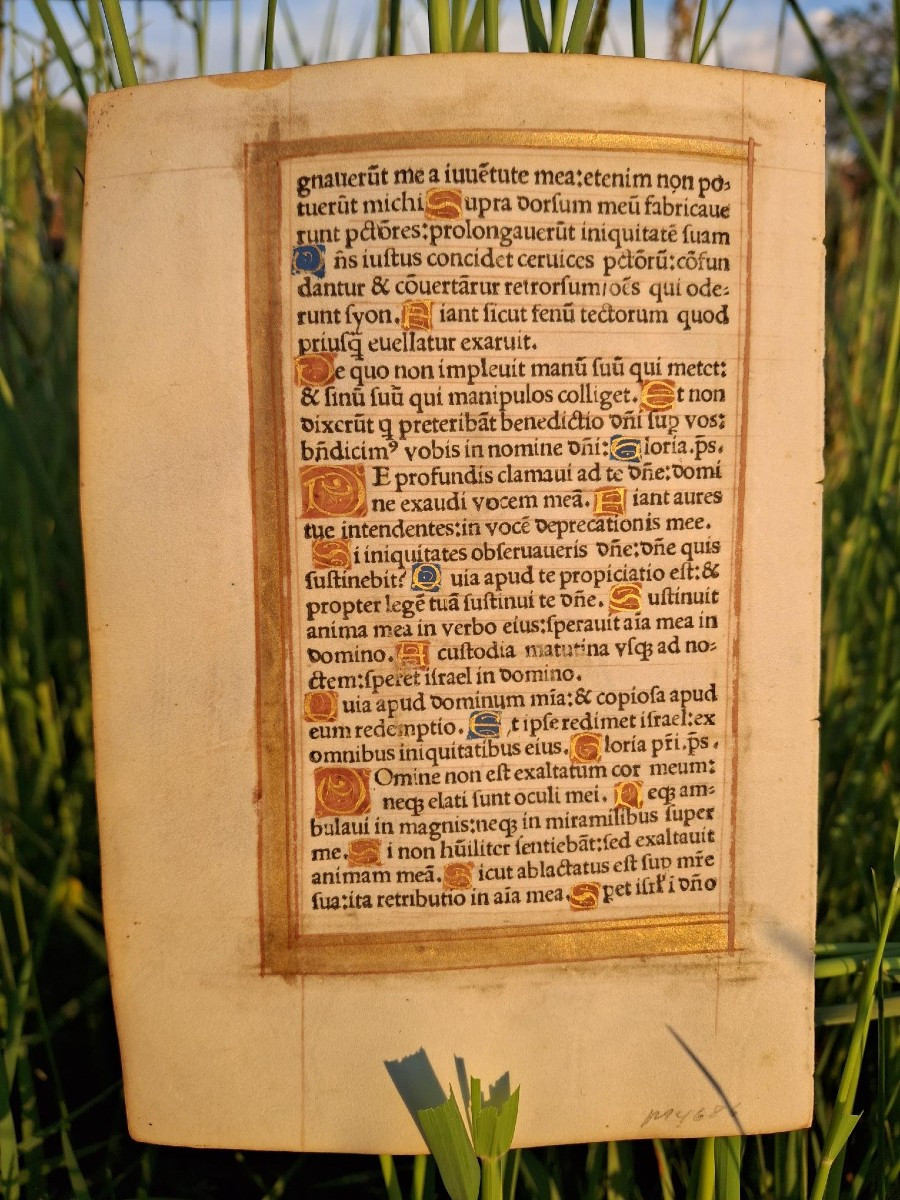 gnauerūt me a iuuētute mea:etenim non po⸗
tuerūt michi Supra dorſum meū fabricaue
runt pctōres:prolongauerūt iniquitatē ſuam
Dn̄s iuſtus concidet ceruices pctōrū:cōfun
dantur & cōuertārur retrorſum/oēs qui ode⸗
runt ſyon. Fiant ſicut fenū tectorum quod
priuſq̄ euellatur exaruit.
De quo non impleuit manū ſuū qui metet:
& ſinū ſuū qui manipulos colliget. Et non
dixerūt q preteribāt benedictio dn̄i ſup vos:
bn̄dicimꝰ vobis in nomine dn̄i: Gloria.p̄s.
DE profundis clamaui ad te dn̄e:domi
ne exaudi vocem meā. Fiant aures
tue intendentes:in vocē deprecationis mee.
Si iniquitates obſeruaueris dn̄e:dn̄e quis
ſuſtinebit? Quia apud te propiciatio eſt:&
propter legē tuā ſuſtinui te dn̄e. Suſtinuit
anima mea in verbo eius:ſperauit aīa mea in
domino. A cuſtodia matutina vſqꝫ ad no⸗
ctem:ſperet iſrael in domino.
Quia apud dominum mīa:& copioſa apud
eum redemptio. Et ipſe redimet iſrael:ex
omnibus iniquitatibus eius. Gloria pr̄i.p̄s.
DOmine non eſt exaltatum cor meum:
neqꝫ elati ſunt oculi mei. Neqꝫ am⸗
bulaui in magnis:neqꝫ in miramilibus ſuper
me. Si non hūiliter ſentiebāt:ſed exaltauit
animam meā. Sicut ablactatus eſt ſup mr̄e
ſua:ita retributio in aīa mea. Spet iſrł i dn̄o